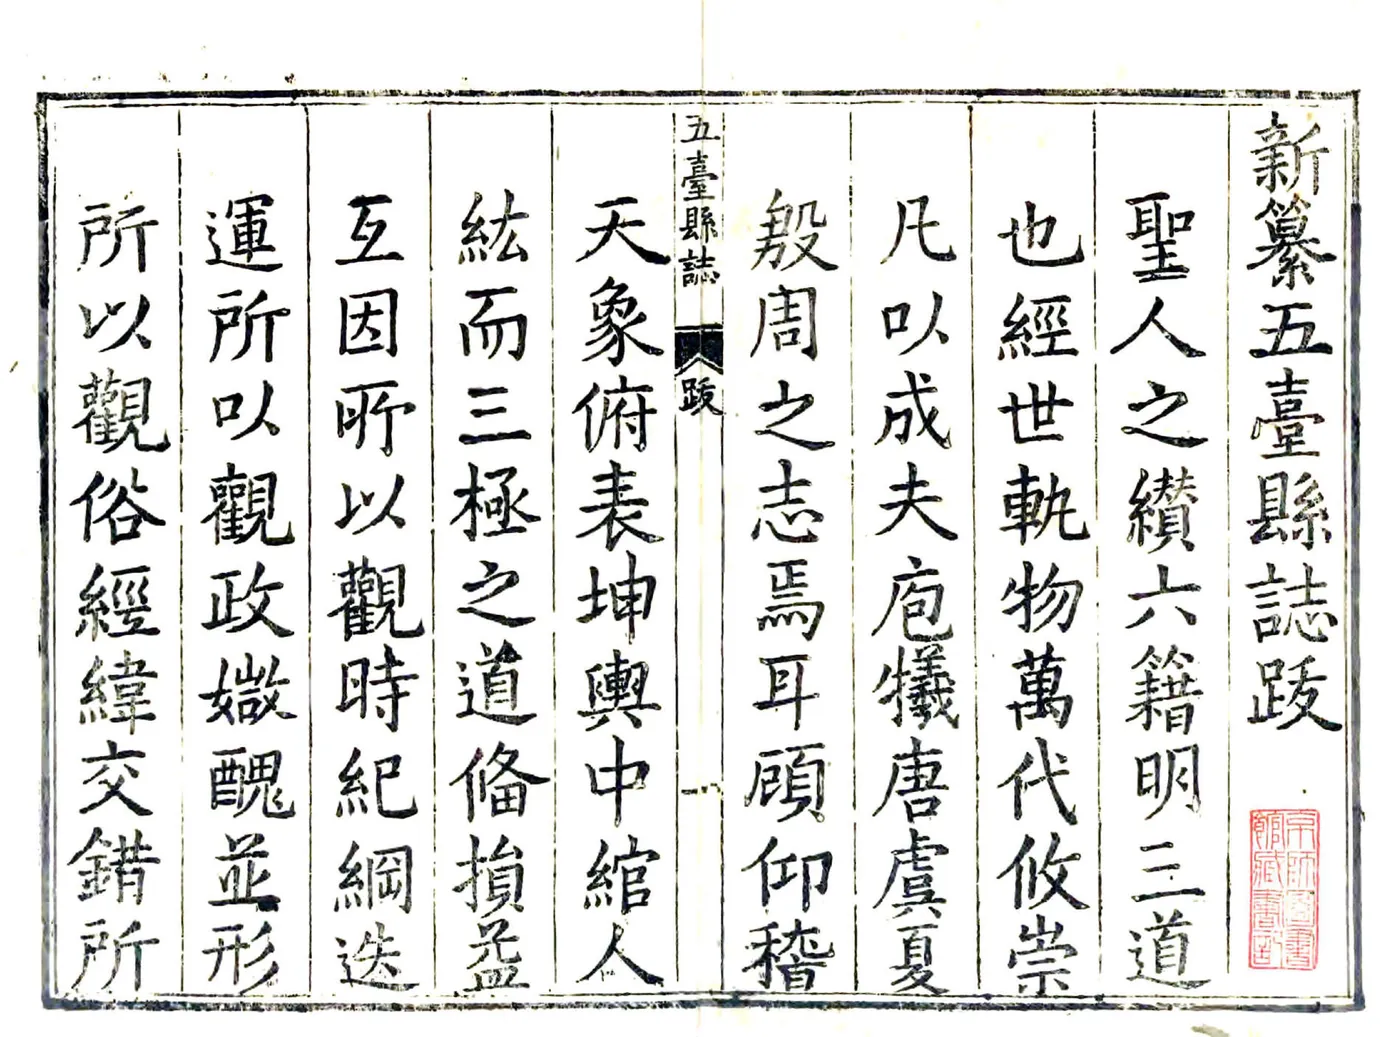 新纂五臺縣誌跋
聖人之纘六籍明三道
也經世軌物萬代攸崇
凡以成夫庖犧唐虞夏
殷周之志焉耳顧仰稽
五臺縣誌
跋
一
天象俯表坤輿中綰人
紘而三極之道俻損益
互因所以觀時紀綱迭
運所以觀政媺醜並形
所以觀俗經緯交錯所
京師圖書
館藏書記